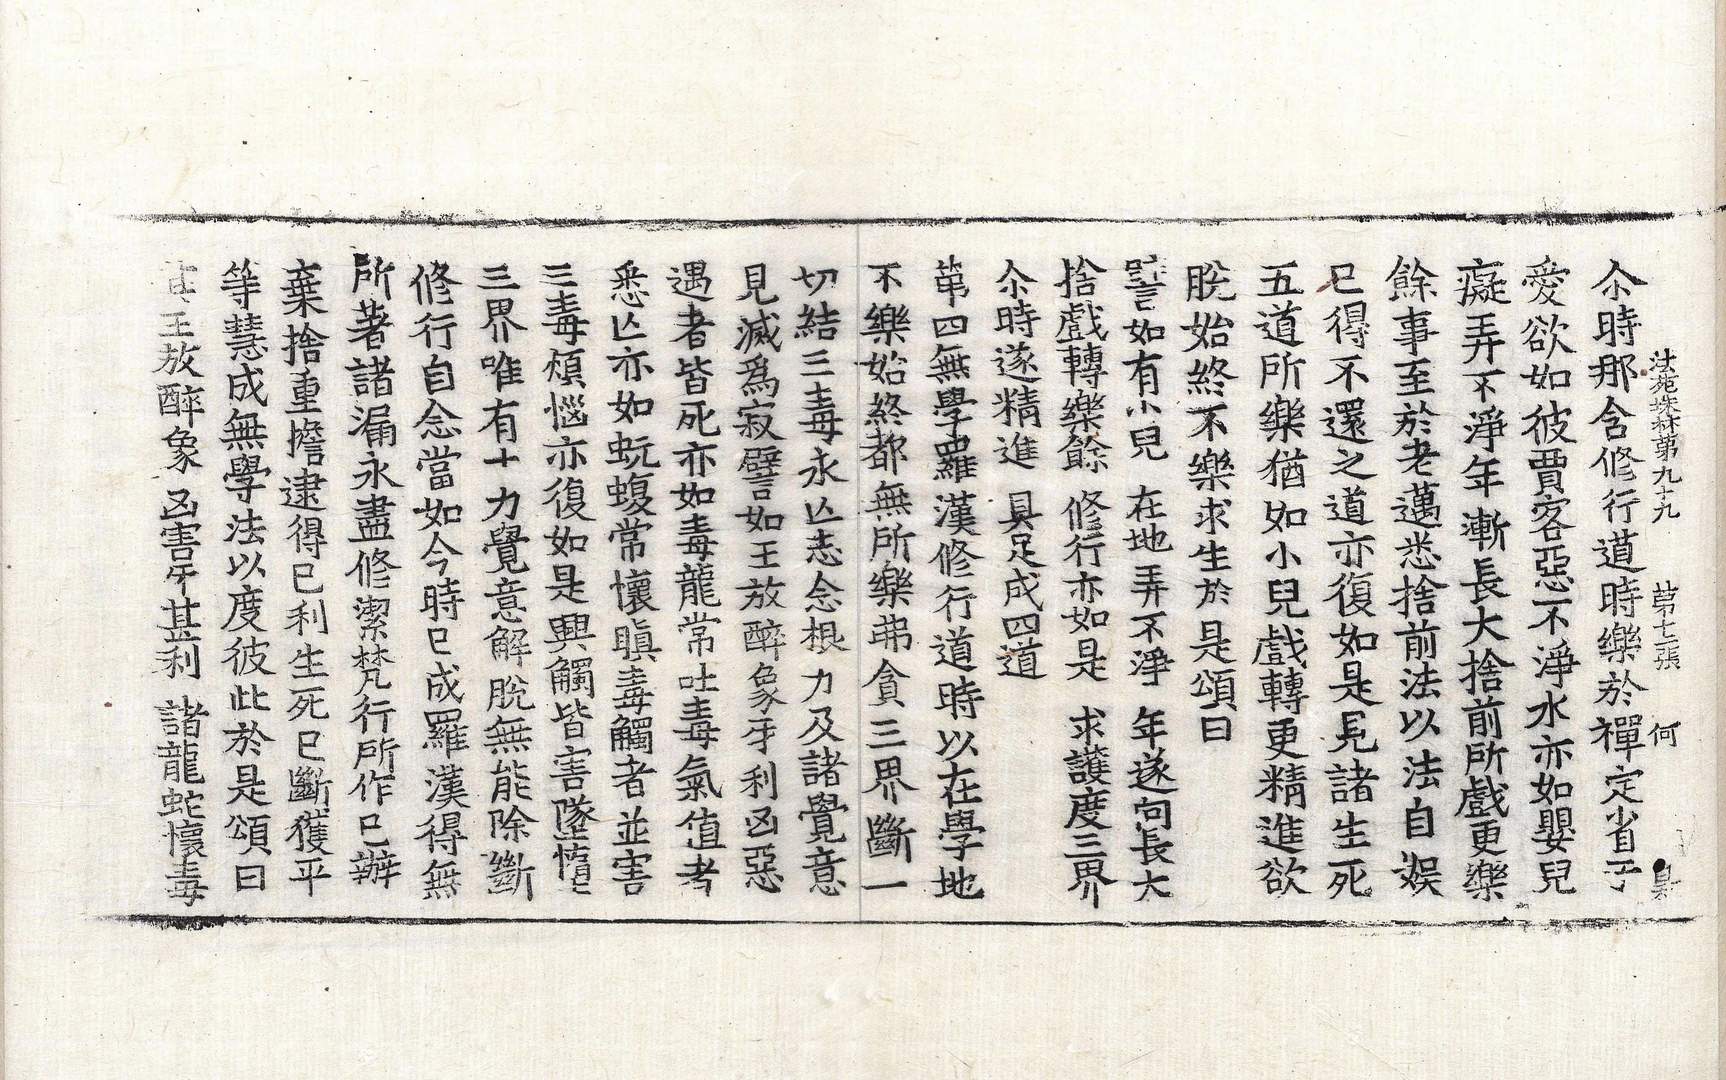 法苑珠林第九十九 第七張 何
尒時那含修行道時樂於禪定省于
愛欲如彼賈客惡不淨水亦如嬰兒
癡弄不淨年漸長大捨前所戲更樂
餘事至於老邁悉捨前法以法自娛
已得不還之道亦復如是見諸生死
五道所樂猶如小兒戲轉更精進欲
脫始終不樂求生於是頌曰
譬如有小兒 在地弄不淨 年遂向長大
捨戲轉樂餘 修行亦如是 求護度三界
尒時遂精進 具足成四道
第四無學羅漢修行道時以在學地
不樂始終都無所樂弗貪三界斷一
切結三毒永亡志念根力及諸覺意
見滅爲寂譬如王放醉象牙利凶惡
遇者皆死亦如毒龍常吐毒氣值者
悉亡亦如蚖蝮常懷瞋毒觸者並害
三毒煩惱亦復如是興觸皆害墜墮
三界唯有十力覺意解脫無能除斷
修行自念當如今時已成羅漢得無
所著諸漏永盡修潔梵行所作已辦
棄捨重擔逮得已利生死已斷獲平
等慧成無學法以度彼此於是頌曰
其王放醉象 凶害牙甚利 諸龍蛇懷毒